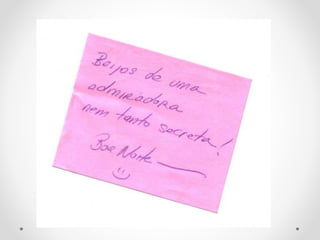 Beijos de uma
admiradora
nem tanto secreta!
Boa Noite